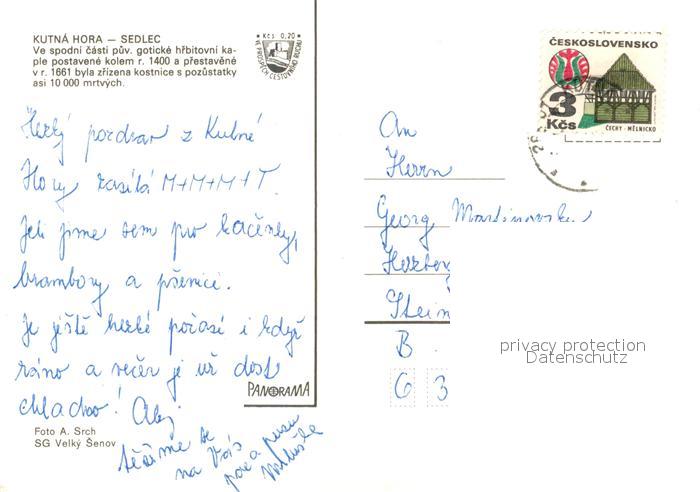 KUTNÁ HORA — SEDLEC
Ve spodní části pův. gotické hřbitovní ka-
ple postavené kolem r. 1400 a přestavěné
v r. 1661 byla zřízena kostnice s pozůstatky
asi 10 000 mrtvých.
Kčs 0,20
VE PROSPĚCH CESTOVNÍHO RUCHU
ČESKOSLOVENSKO
3 Kčs
ČECHY - MĚLNICKO
Hezký pozdrav z Kutné
Hory zasílá M+M+M+T.
Jeli jsme sem pro kačenky,
brambory a pšenici.
Je ještě hezké počasí i když
ráno a večer je už dost
chladno! Ahoj
těšíme se
na Vás
An
Herrn
Georg
Herzberg
Stein
B
6 3
PANORAMA
Foto A. Srch
SG Velký Šenov
privacy protection
Datenschutz